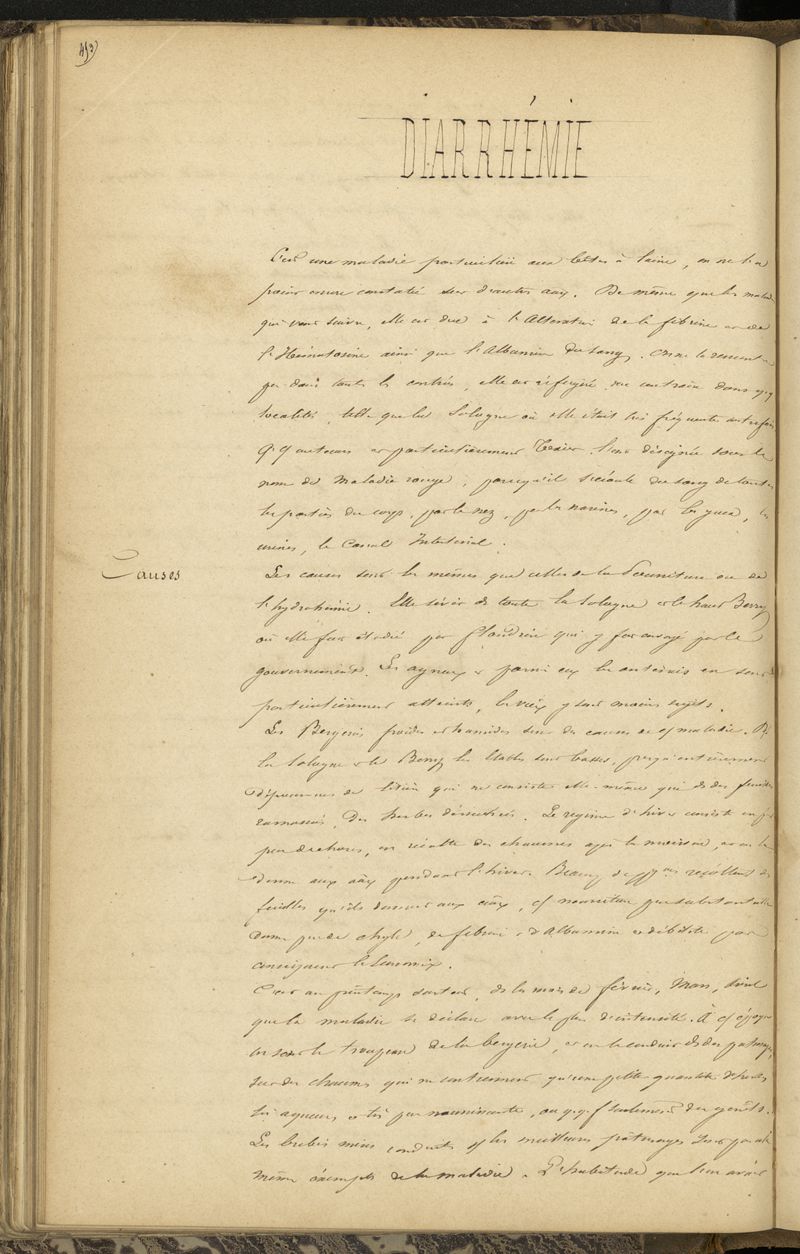 453
DIARRHÉMIE
C'est une maladie particulière aux bêtes à laine, on ne l'a
point encore constatée sur d'autres aux. De même que les malad
qui vont suivre, elle est due à l'altération de la fibrine et de
l'Hématosine ainsi que l'Albumine du sang. On ne la rencontre
pas dans toutes les contrées, elle est réfugiée au contraire dans qq
localités, telle que la Sologne où elle était très fréquente autrefois
Qq auteurs et particulièrement Tessier l'ont désignée sous le
nom de Maladie rouge, parcequ'il s'écoule du sang de toutes
les parties du corps, par le nez, par les narines, par les yeux, les
urines, le Canal Intestinal.
Causes
Les causes sont les mêmes que celles de la Pourriture ou de
l'hydrohémie. Elle sévit ds toute la Sologne et le haut Berry
où elle fut étudiée par Flandrin qui y fut envoyé par le
gouvernement. Les agneaux et parmi eux les antenois en sont
particulièrement atteints, les vieux y sont moins sujets.
Les Bergeries froides et humides sont des causes de cj maladie. Ds
la Sologne et le Berry les étables sont basses, presqu'entièrement
dépourvues de litière qui ne consiste elle-même qu'ds des feuilles
ramassées, des herbes désséchées. Le régime d'hiver consiste en
peu de choses, on récolte des chaumes après la moisson, et on les
donne aux aux pendant l'hiver. Beaucp de récoltent des
feuilles qu'ils donnent aux aux, cj nourriture peu substantielle
donne peu de chyle, de fibrine et d'Albumine et débilite par
conséquent l'économie.
C'est au printemps surtout, ds les mois de février, Mars, Avril
que la maladie se déclare avec le plus d'intensité. À cj époque
on sort le troupeau de la bergerie, et on le conduit ds des paturages,
sur des chaumes qui ne contiennent qu'une petite quantité d'herbes
très aqueuses et très peu nourrissante, ou qqf seulement des genêts.
Les brebis mères conduites ds les meilleurs pâturages sont par là
même exemptes de la maladie. L'habitude que l'on avait